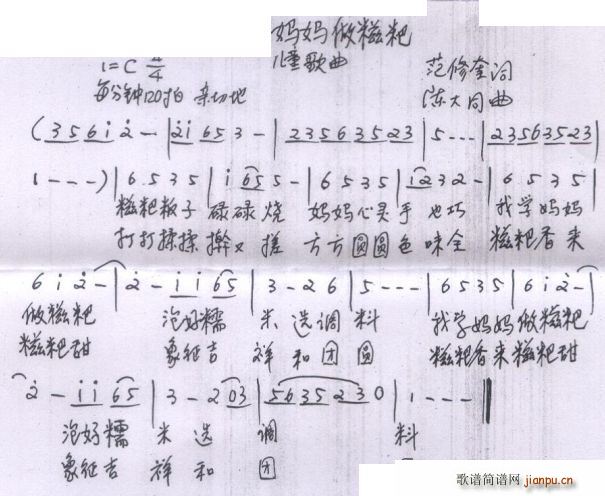 妈妈做糍粑
儿童歌曲
1=C 4/4
范修奎词
每分钟120拍 亲切地
陈大同曲
(3561̇2̇-|2̇1̇653-|2356 3523|5---|2356 3523|
1---)|6535|1̇655-|6535|1̇232-|6535|
糍粑粄子 碌碌烧 妈妈心灵手也巧 我学妈妈
打打揉揉 擀又搓 方方圆圆色味全 糍粑香来
61̇2̇-|2̇-1̇1̇65|3-26|5---|6535|61̇2̇-|
做糍粑 泡好糯米选调料 我学妈妈做糍粑
糍粑甜 象征吉祥和团圆 糍粑香来糍粑甜
2̇-1̇1̇65|3-203|5635230|1---‖
泡好糯米选调料
象征吉祥和团
歌谱简谱网
jianpu.cn